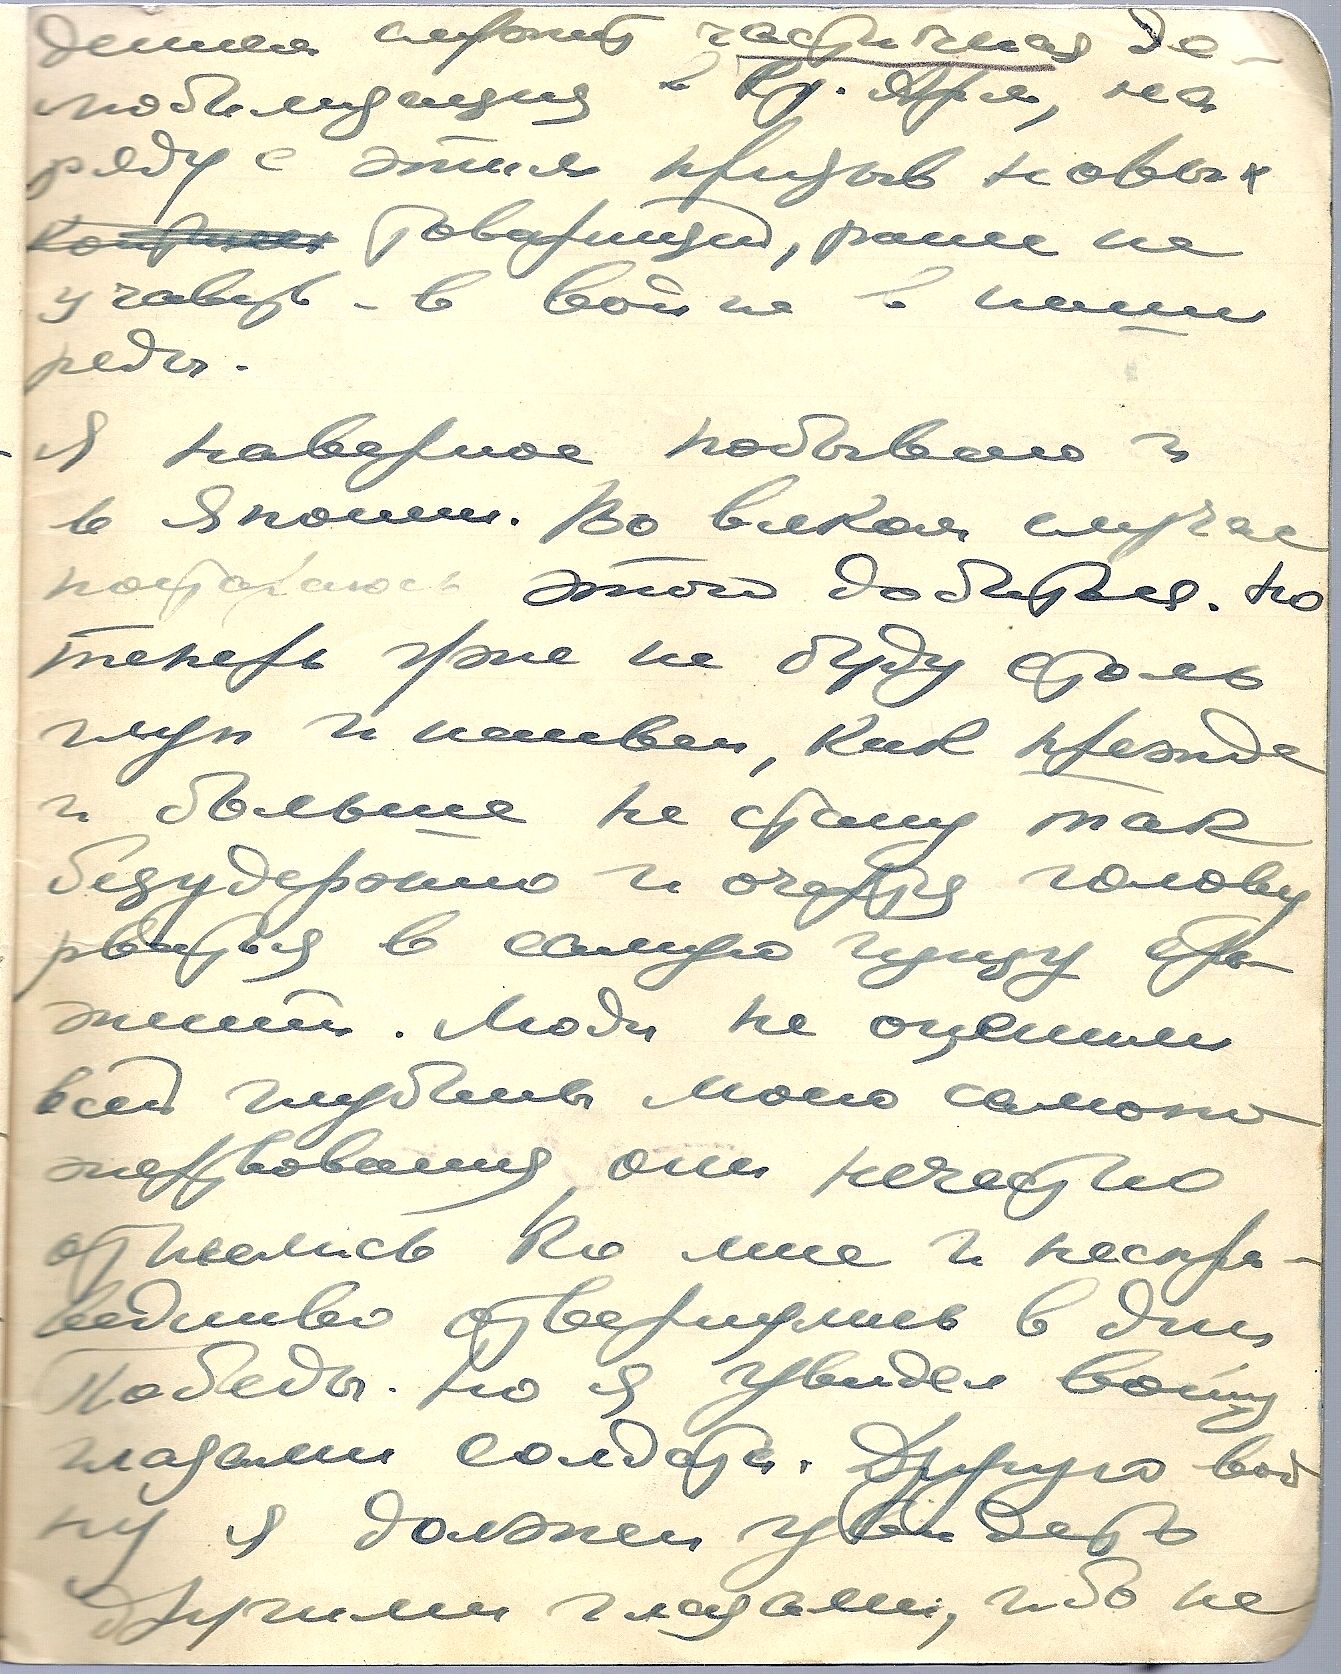 дением служит частичная де-
мобилизация в Кр. Арм, на
ряду с этим призыв новых
товарищей, ранее не
участв. в войне в наши
ряды.
Я наверное побываю и
в Японии. Во всяком случае
постараюсь этого добиться. Но
теперь уже не буду столь
глуп и наивен, как прежде
и больше не стану так
безудержно и очертя голову
рваться в самую гущу сра-
жений. Люди не оценили
всей глубины моего самопо-
жертвования, они нечестно
отнеслись ко мне и неспра-
ведливо отвернулись в дни
Победы. Но я увидел войну
глазами солдата. Другую вой
ну я должен увидеть
другими глазами, ибо не